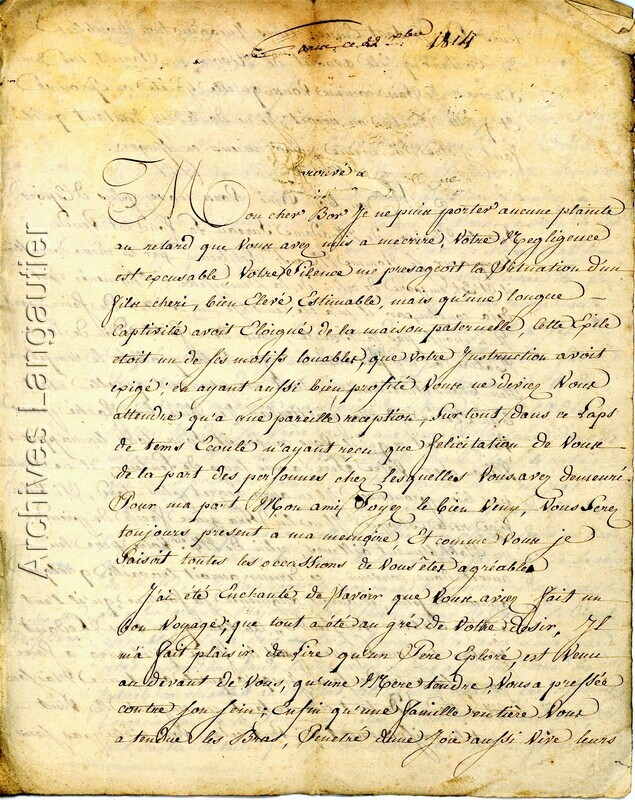 ce 22 1814
Trouvé a
Mon cher Bor Je ne puis porter aucune plainte
au retard que Vous avez mis a mecrire, Votre Negligence
est excusable, Votre Silence me presageoit la Situation d'un
fils cheri, bien Elevé, Estimable, mais qu'une longue
Captivité avoit Eloigné de la maison paternelle, Cette Exile
etoit un de ses motifs louables, que Votre Instruction avoit
exigé; en ayant aussi bien profité Vous ne deviez Vous
attendre qu'a une pareille reception, Surtout, dans ce Laps
de tems Ecoulé n'ayant reçu que felicitation de Vous
de la part des personnes chez lesquelles Vous avez demeuré.
Pour ma part Mon ami Soyez le bien Venu, Vous Serez
toujours present a ma memoire, Et comme Vous je
toutes les occassions de Vous être agréable
J'ai été Enchanté de Savoir que Vous aviez fait un
bon Voyage, que tout a été au gré de Votre desir, Il
m'a fait plaisir de Lire qu'un Pere Eploré, est Venu
au devant de Vous, qu'une Mere tendre, Vous a pressée
contre Son Sein; Enfin qu'une famille entière Vous
a tendue les Bras, d'une Joie aussi Vive leurs
Archives Langautier